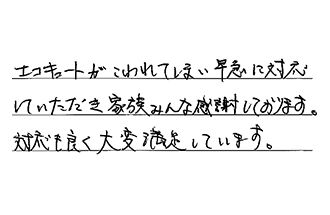 エコキュートがこわれてしまい早急に対応
していただき家族みんな感謝しております。
対応も良く大変満足しています。